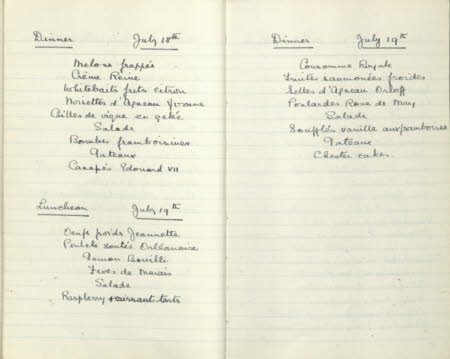 Dinner July 18th
Melons frappés
Crême Reine
Whitebaits frits citron
Noisettes d'Agneau Yvonne
Cailles de vigne en gelée
Salade
Bombes framboisines
Gateaux
Canapés Edouard VII
Luncheon July 19th
Oeufs froids Jeannette
Poulets sautés Orléanaise
Jamon Bouilli
Feves de Marais
Salade
Raspberry + currant tarts
Dinner July 19th
Consomme Royale
Truites saumonées froides
Selles d'Agneau Orloff
Poulardes Rose de May
Salade
Soufflés vanille aux framboises
Gateaux
Chester cakes.